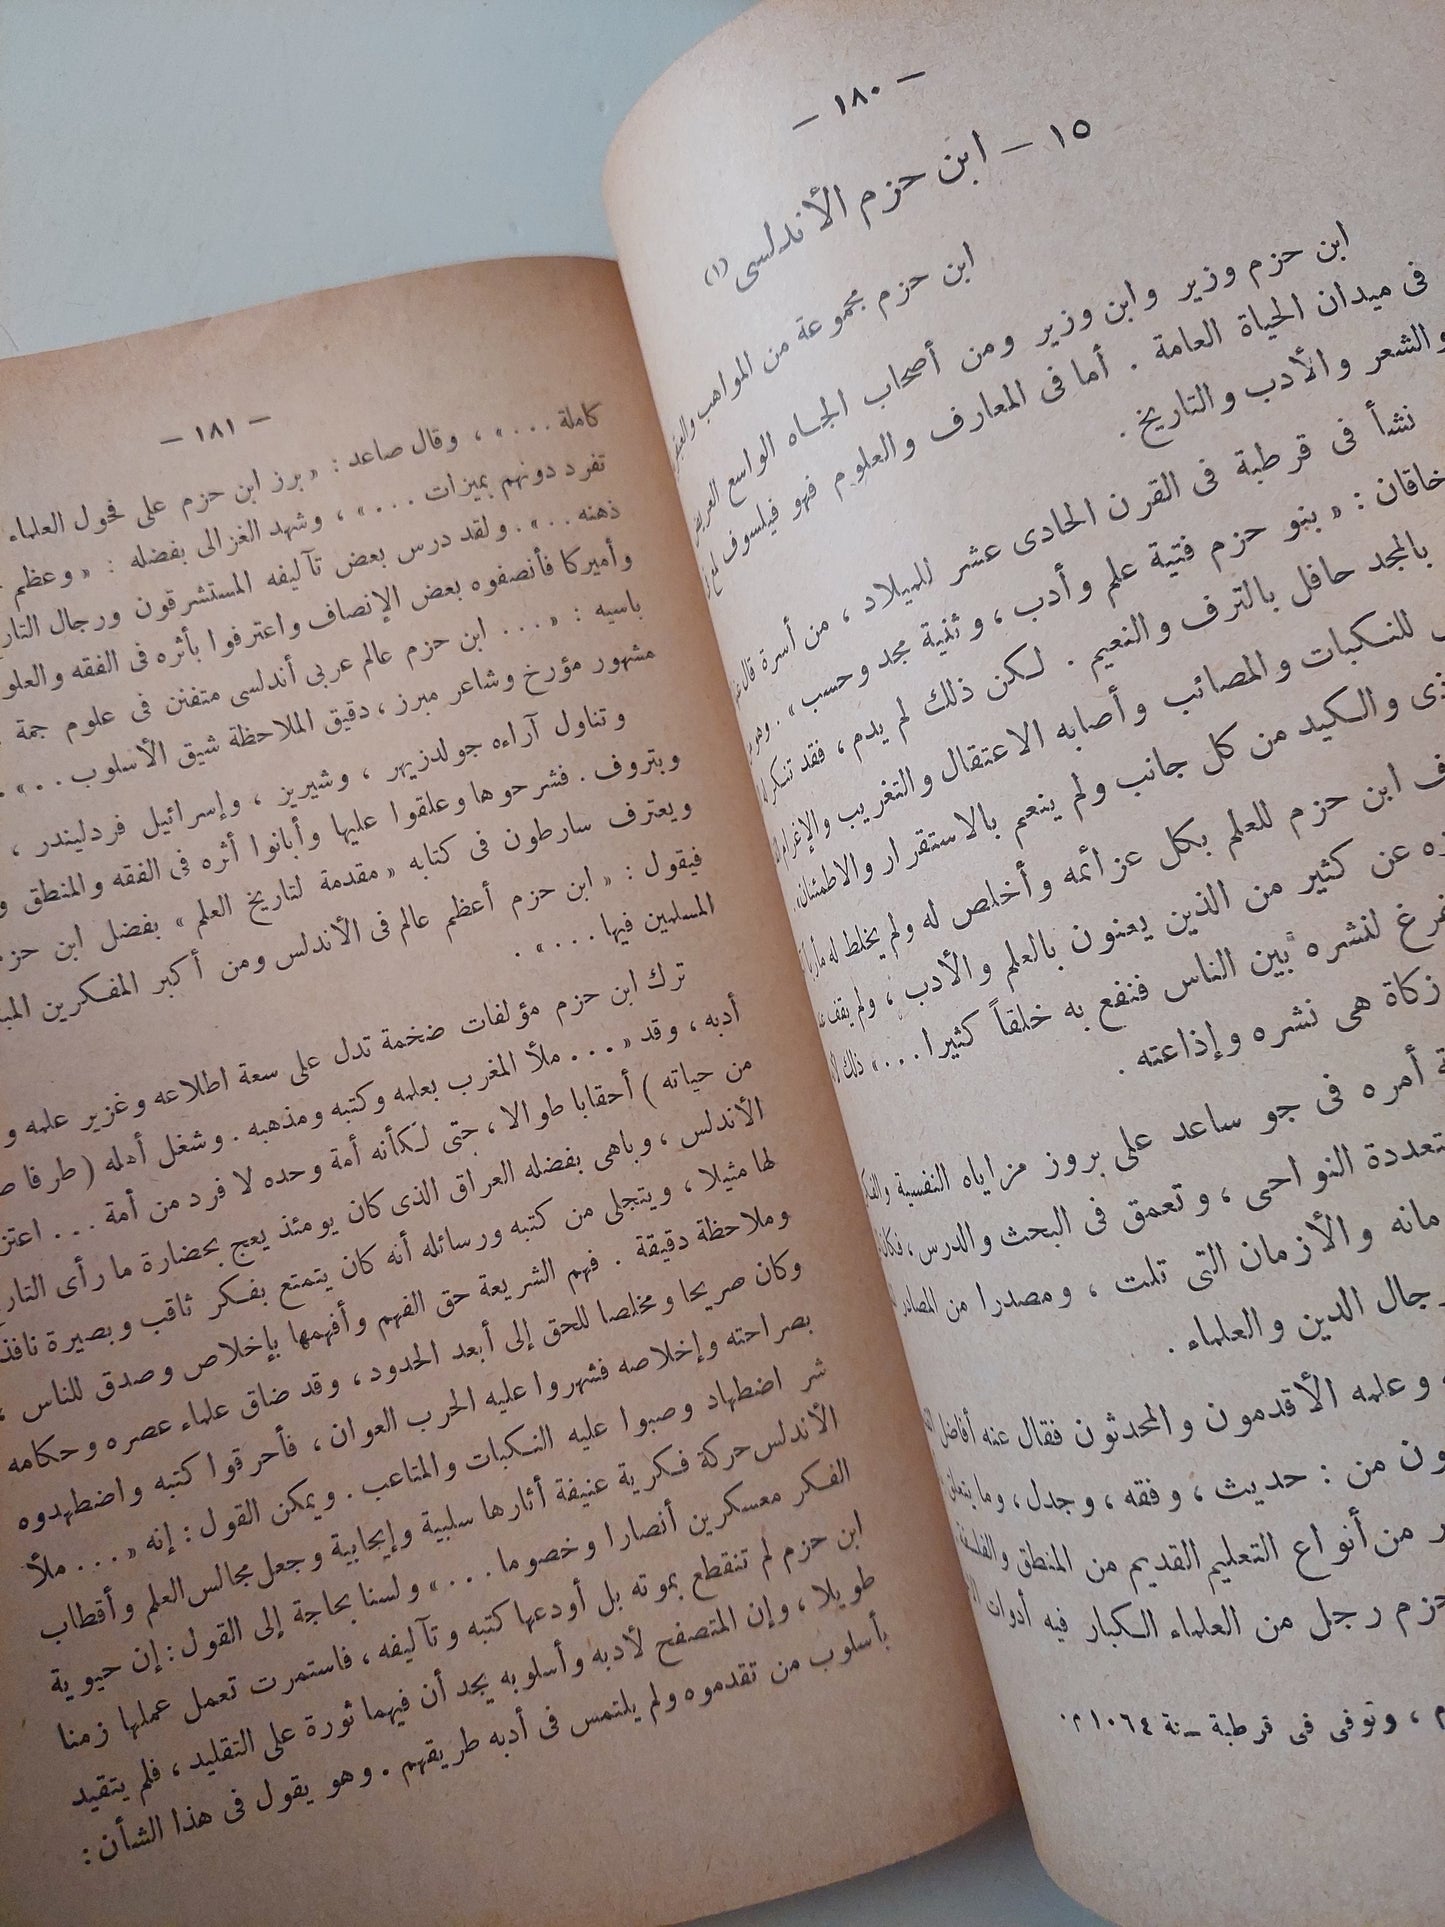 — ١٨٠ —
١٥ — ابن حزم الأندلسى (١)
ابن حزم مجموعة من المواهب
ابن حزم وزير وابن وزير ومن أصحاب الجاه الواسع
فى ميدان الحياة العامة . أما فى المعارف والعلوم فهو فيلسوف
والشعر والأدب والتاريخ .
نشأ فى قرطبة فى القرن الحادى عشر للميلاد ، من أسرة قال
خاقان : « بنو حزم فتية علم وأدب ، وثنية مجد وحسب » .
بالمجد حافل بالترف والنعيم . لكن ذلك لم يدم ، فقد
للنكبات والمصائب وأصابه الاعتقال والتغريب والإغرام
والكيد من كل جانب ولم ينعم بالاستقرار والاطمئنان .
ابن حزم للعلم بكل عزائمه وأخلص له ولم يخلط له
عن كثير من الذين يعنون بالعلم والأدب ، ولم يقف
لنشره بين الناس فنفع به خلقاً كثيرا ... » ذلك
زكاة هى نشره وإذاعته .
أمره فى جو ساعد على بروز مزاياه النفسية
النواحى ، وتعمق فى البحث والدرس ،
والأزمان التى تلت ، ومصدرا من المصادر
الدين والعلماء .
وعلمه الأقدمون والمحدثون فقال عنه أفاضل
من : حديث ، وفقه ، وجدل ، وما
من أنواع التعليم القديم من المنطق والفلسفة
حزم رجل من العلماء الكبار فيه أدوات
م ، وتوفى فى قرطبة سنة ١٠٦٤ م .
— ١٨١ —
كاملة ... » ، وقال صاعد : « برز ابن حزم على فحول العلماء
تفرد دونهم بميزات ... » ، وشهد الغزالى بفضله : « وعظم
ذهنه .. » . ولقد درس بعض تآليفه المستشرقون ورجال
وأميركا فأنصفوه بعض الإنصاف واعترفوا بأثره فى الفقه
باسيه : « ... ابن حزم عالم عربى أندلسى متفنن فى علوم جمة
مشهور مؤرخ وشاعر مبرز ، دقيق الملاحظة شيق الأسلوب ... » .
وتناول آراءه جولدزيهر ، وشيريز ، وإسرائيل فردليندر ،
وبتروف . فشرحوها وعلقوا عليها وأبانوا أثره فى الفقه والمنطق
ويعترف سارطون فى كتابه « مقدمة لتاريخ العلم » بفضل ابن حزم
فيقول : « ابن حزم أعظم عالم فى الأندلس ومن أكبر المفكرين
المسلمين فيها ... » .
ترك ابن حزم مؤلفات ضخمة تدل على سعة اطلاعه وغزير علمه
أدبه ، وقد « ... ملأ المغرب بعلمه وكتبه ومذهبه . وشغل أهله ( طرفا
من حياته ) أحقابا طوالا ، حتى لكأنه أمة وحده لا فرد من أمة ...
الأندلس ، وباهى بفضله العراق الذى كان يومئذ يعج بحضارة ما رأى
لها مثيلا ، ويتجلى من كتبه ورسائله أنه كان يتمتع بفكر ثاقب وبصيرة
وملاحظة دقيقة . فهم الشريعة حق الفهم وأفهمها بإخلاص وصدق للناس ،
وكان صريحا ومخلصا للحق إلى أبعد الحدود ، وقد ضاق علماء عصره وحكامه
بصراحته وإخلاصه فشهروا عليه الحرب العوان ، فأحرقوا كتبه واضطهدوه
شر اضطهاد وصبوا عليه النكبات والمتاعب . ويمكن القول : إنه « ... ملأ
الأندلس حركة فكرية عنيفة أثارها سلبية وإيجابية وجعل مجالس العلم وأقطاب
الفكر معسكرين أنصارا وخصوما ... » ولسنا بحاجة إلى القول : إن حيوية
ابن حزم لم تنقطع بموته بل أودعها كتبه وتآليفه ، فاستمرت تعمل عملها زمنا
طويلا ، وإن المتصفح لأدبه وأسلوبه يجد أن فيهما ثورة على التقليد ، فلم يتقيد
بأسلوب من تقدموه ولم يلتمس فى أدبه طريقهم . وهو يقول فى هذا الشأن :